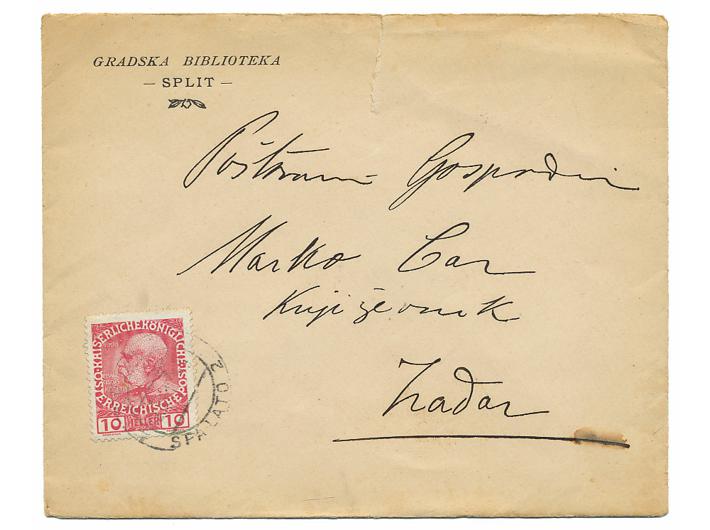 GRADSKA BIBLIOTEKA
— SPLIT —
Poštovani Gospodin
Marko Car
Književnik
Zadar
KAISERLICHE KÖNIGLICHE
ÖSTERREICHISCHE POST
10 HELLER 10
SPALATO 2